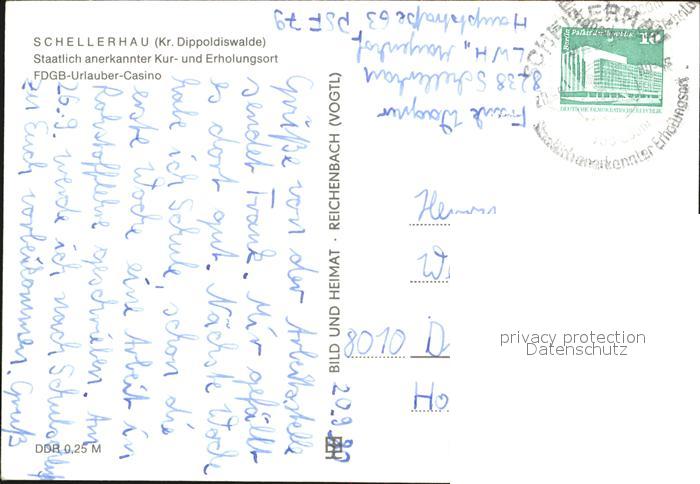 SCHELLERHAU (Kr. Dippoldiswalde)
Staatlich anerkannter Kur- und Erholungsort
FDGB-Urlauber-Casino
Grüße von der Arbeitsstelle
sendet Frank. Mir gefällt
es dort gut. Nächste Woche
habe ich Schule, schon die
erste Woche eine Arbeit in
Rohstofflehre geschrieben. Am
26.9. werde ich nach Schulschluß
zu Euch vorbeikommen. Gruß
DDR 0,25 M
BILD UND HEIMAT · REICHENBACH (VOGTL)
20.9.90
Frank Wagner
8238 Schellerhau
LWH "
Hauptstraße 63 PSF 79
SCHELLERHAU
Staatlich anerkannter Erholungsort
Berlin, Palast der Republik
10
DEUTSCHE DEMOKRATISCHE REPUBLIK
Herrn
W
8010 D
Ho
privacy protection
Datenschutz